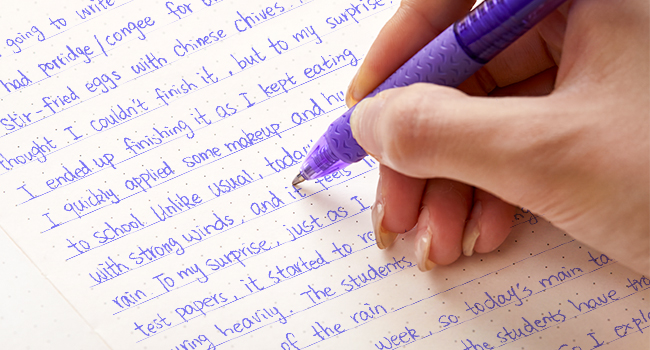 going to write
had porridge/congee for
stir-fried eggs with chinese chives.
thought I couldn't finish it, but to my surprise,
I ended up finishing it as I kept eating
I quickly applied some makeup and
to school. Unlike usual, today
with strong winds, and it feels
rain. To my surprise, just as I
test papers, it started to
heavily. The students
of the rain
week, so today's main
the students have
So I